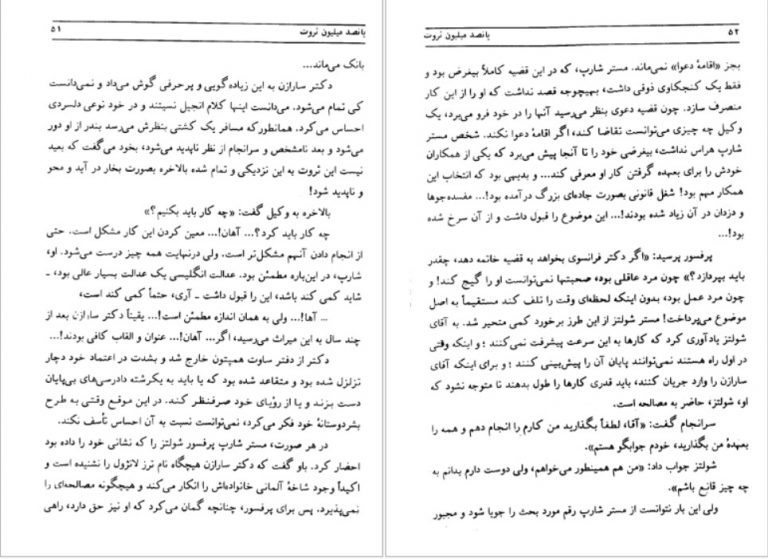 پانصد میلیون ثروت ۵۱
بانک می‌ماند...
دکتر سارازن به این زیاده‌گویی و پرحرفی گوش می‌داد و نمی‌دانست
کی تمام می‌شود. می‌دانست اینها کلام انجیل نیستند و در خود نوعی دلسردی
احساس می‌کرد. همانطورکه مسافر یک کشتی بنظرش می‌رسد بندر از او دور
می‌شود و بعد نامشخص و سرانجام از نظر ناپدید می‌شود، بخود می‌گفت که بعید
نیست این ثروت به این نزدیکی و تمام شده بالاخره بصورت بخار در آید و محو
و ناپدید شود!
بالاخره به وکیل گفت: «چه کار باید بکنیم؟»
چه کار باید کرد؟... آهان!... معین کردن این کار مشکل است. حتی
از انجام دادن آنهم مشکل‌تر است. ولی درنهایت همه چیز درست می‌شود. او،
شارپ، در این‌باره مطمئن بود. عدالت انگلیسی یک عدالت بسیار عالی بود، ـ
شاید کمی کند باشد، این را قبول داشت ـ آری، حتماً کمی کند است،
... آها!... ولی به همان اندازه مطمئن است!... یقیناً دکتر سارازن بعد از
چند سال به این میراث می‌رسید، اگر... آهان!... عنوان و القاب کافی بودند!...
دکتر از دفتر ساوت همپتون خارج شد و بشدت در اعتماد خود دچار
تزلزل شده بود و متقاعد شده بود که یا باید به یکرشته دادرسی‌های بی‌پایان
دست بزند و یا از رؤیای خود صرفنظر کند. در این موقع وقتی به طرح
بشردوستانهٔ خود فکر می‌کرد، نمی‌توانست نسبت به آن احساس تأسف نکند.
در هر صورت، مستر شارپ پرفسور شولتز را که نشانی خود را داده بود
احضار کرد. باو گفت که دکتر سارازن هیچگاه نام ترز لانژول را نشنیده است و
اکیداً وجود شاخهٔ آلمانی خانواده‌اش را انکار می‌کند و هیچگونه مصالحه‌ای را
نمی‌پذیرد. پس برای پرفسور، چنانچه گمان می‌کرد که او نیز حق دارد، راهی
۵۲ پانصد میلیون ثروت
بجز «اقامهٔ دعوا» نمی‌ماند. مستر شارپ، که در این قضیه کاملاً بیغرض بود و
فقط یک کنجکاوی ذوقی داشت، بهیچوجه قصد نداشت که او را از این کار
منصرف سازد. چون قضیه دعوی بنظر می‌رسید آنها را در خود فرو می‌برد، یک
وکیل چه چیزی می‌توانست تقاضا کند، اگر اقامهٔ دعوا نکند. شخص مستر
شارپ هراس نداشت، بیغرضی خود را تا آنجا پیش می‌برد که یکی از همکاران
خودش را برای بعهده گرفتن کار او معرفی کند... و بدیهی بود که انتخاب این
همکار مهم بود! شغل قانونی بصورت جاده‌ای بزرگ در‌آمده بود!... مفسده‌جوها
و دزدان در آن زیاد شده بودند!... این موضوع را قبول داشت و از آن سرخ شده
بود!...
پرفسور پرسید: «اگر دکتر فرانسوی بخواهد به قضیه خاتمه دهد، چقدر
باید بپردازد؟» چون مرد عاقلی بود، صحبتها نمی‌توانست او را گیج کند! و
چون مرد عمل بود، بدون اینکه لحظه‌ای وقت را تلف کند مستقیماً به اصل
موضوع می‌پرداخت! مستر شولتز از این طرز برخورد کمی متحیر شد. به آقای
شولتز یادآوری کرد که کارها به این سرعت پیشرفت نمی‌کنند؛ و اینکه وقتی
در اول راه هستند نمی‌توانند پایان آن را پیش‌بینی کنند؛ و برای اینکه آقای
سارازن را وارد جریان کنند، باید قدری کارها را طول بدهند تا متوجه نشود که
او، شولتز، حاضر به مصالحه است.
سرانجام گفت: «آقا، لطفاً بگذارید من کارم را انجام دهم و همه را
بعهدهٔ من بگذارید، خودم جوابگو هستم».
شولتز جواب داد: «من هم همینطور می‌خواهم، ولی دوست دارم بدانم به
چه چیز قانع باشم».
ولی این بار نتوانست از مستر شارپ رقم مورد بحث را جویا شود و مجبور